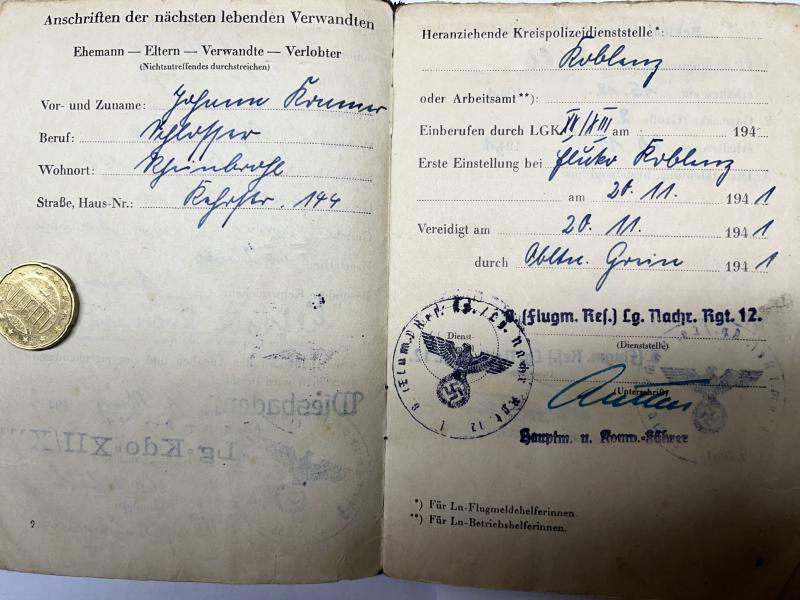 Anschriften der nächsten lebenden Verwandten
Ehemann — Eltern — Verwandte — Verlobter
(Nichtzutreffendes durchstreichen)
Vor- und Zuname: Johann Krumer
Beruf: Schlosser
Wohnort: Rheinbrohl
Straße, Haus-Nr.: Kehrstr. 144
Wiesbaden
Lg. Kdo. XII/X
2
Heranziehende Kreispolizeidienststelle*:
Koblenz
oder Arbeitsamt**):
Einberufen durch LGK XII/XIII am 194
Erste Einstellung bei Fluko Koblenz
am 20. 11. 1941
Vereidigt am 20. 11. 1941
durch Obltn. Grün 1941
(Flugm. Res.) Lg. Nachr. Rgt. 12.
(Dienststelle)
Dienst-
(Unterschrift)
Hauptm. u. Komp.-Führer
*) Für Ln-Flugmeldehelferinnen.
**) Für Ln-Betriebshelferinnen.